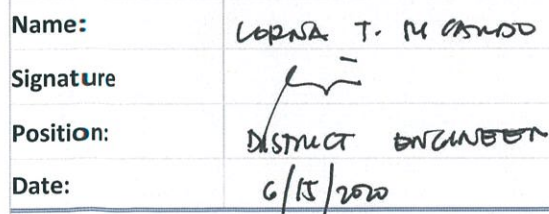 Name: LORNA T.
Signature
Position: DISTRICT ENGINEER
Date: 6/15/2020